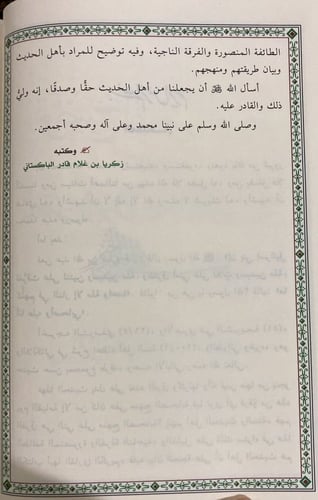 الطائفة المنصورة والفرقة الناجية، وفيه توضيح للمراد بأهل الحديث
وبيان طريقتهم ومنهجهم.
أسأل الله ﷻ أن يجعلنا من أهل الحديث حقًّا وصدقًا، إنه وليُّ
ذلك والقادر عليه.
وصلى الله وسلم على نبينا محمد وعلى آله وصحبه أجمعين.
وكتبه
زكريا بن غلام قادر الباكستاني